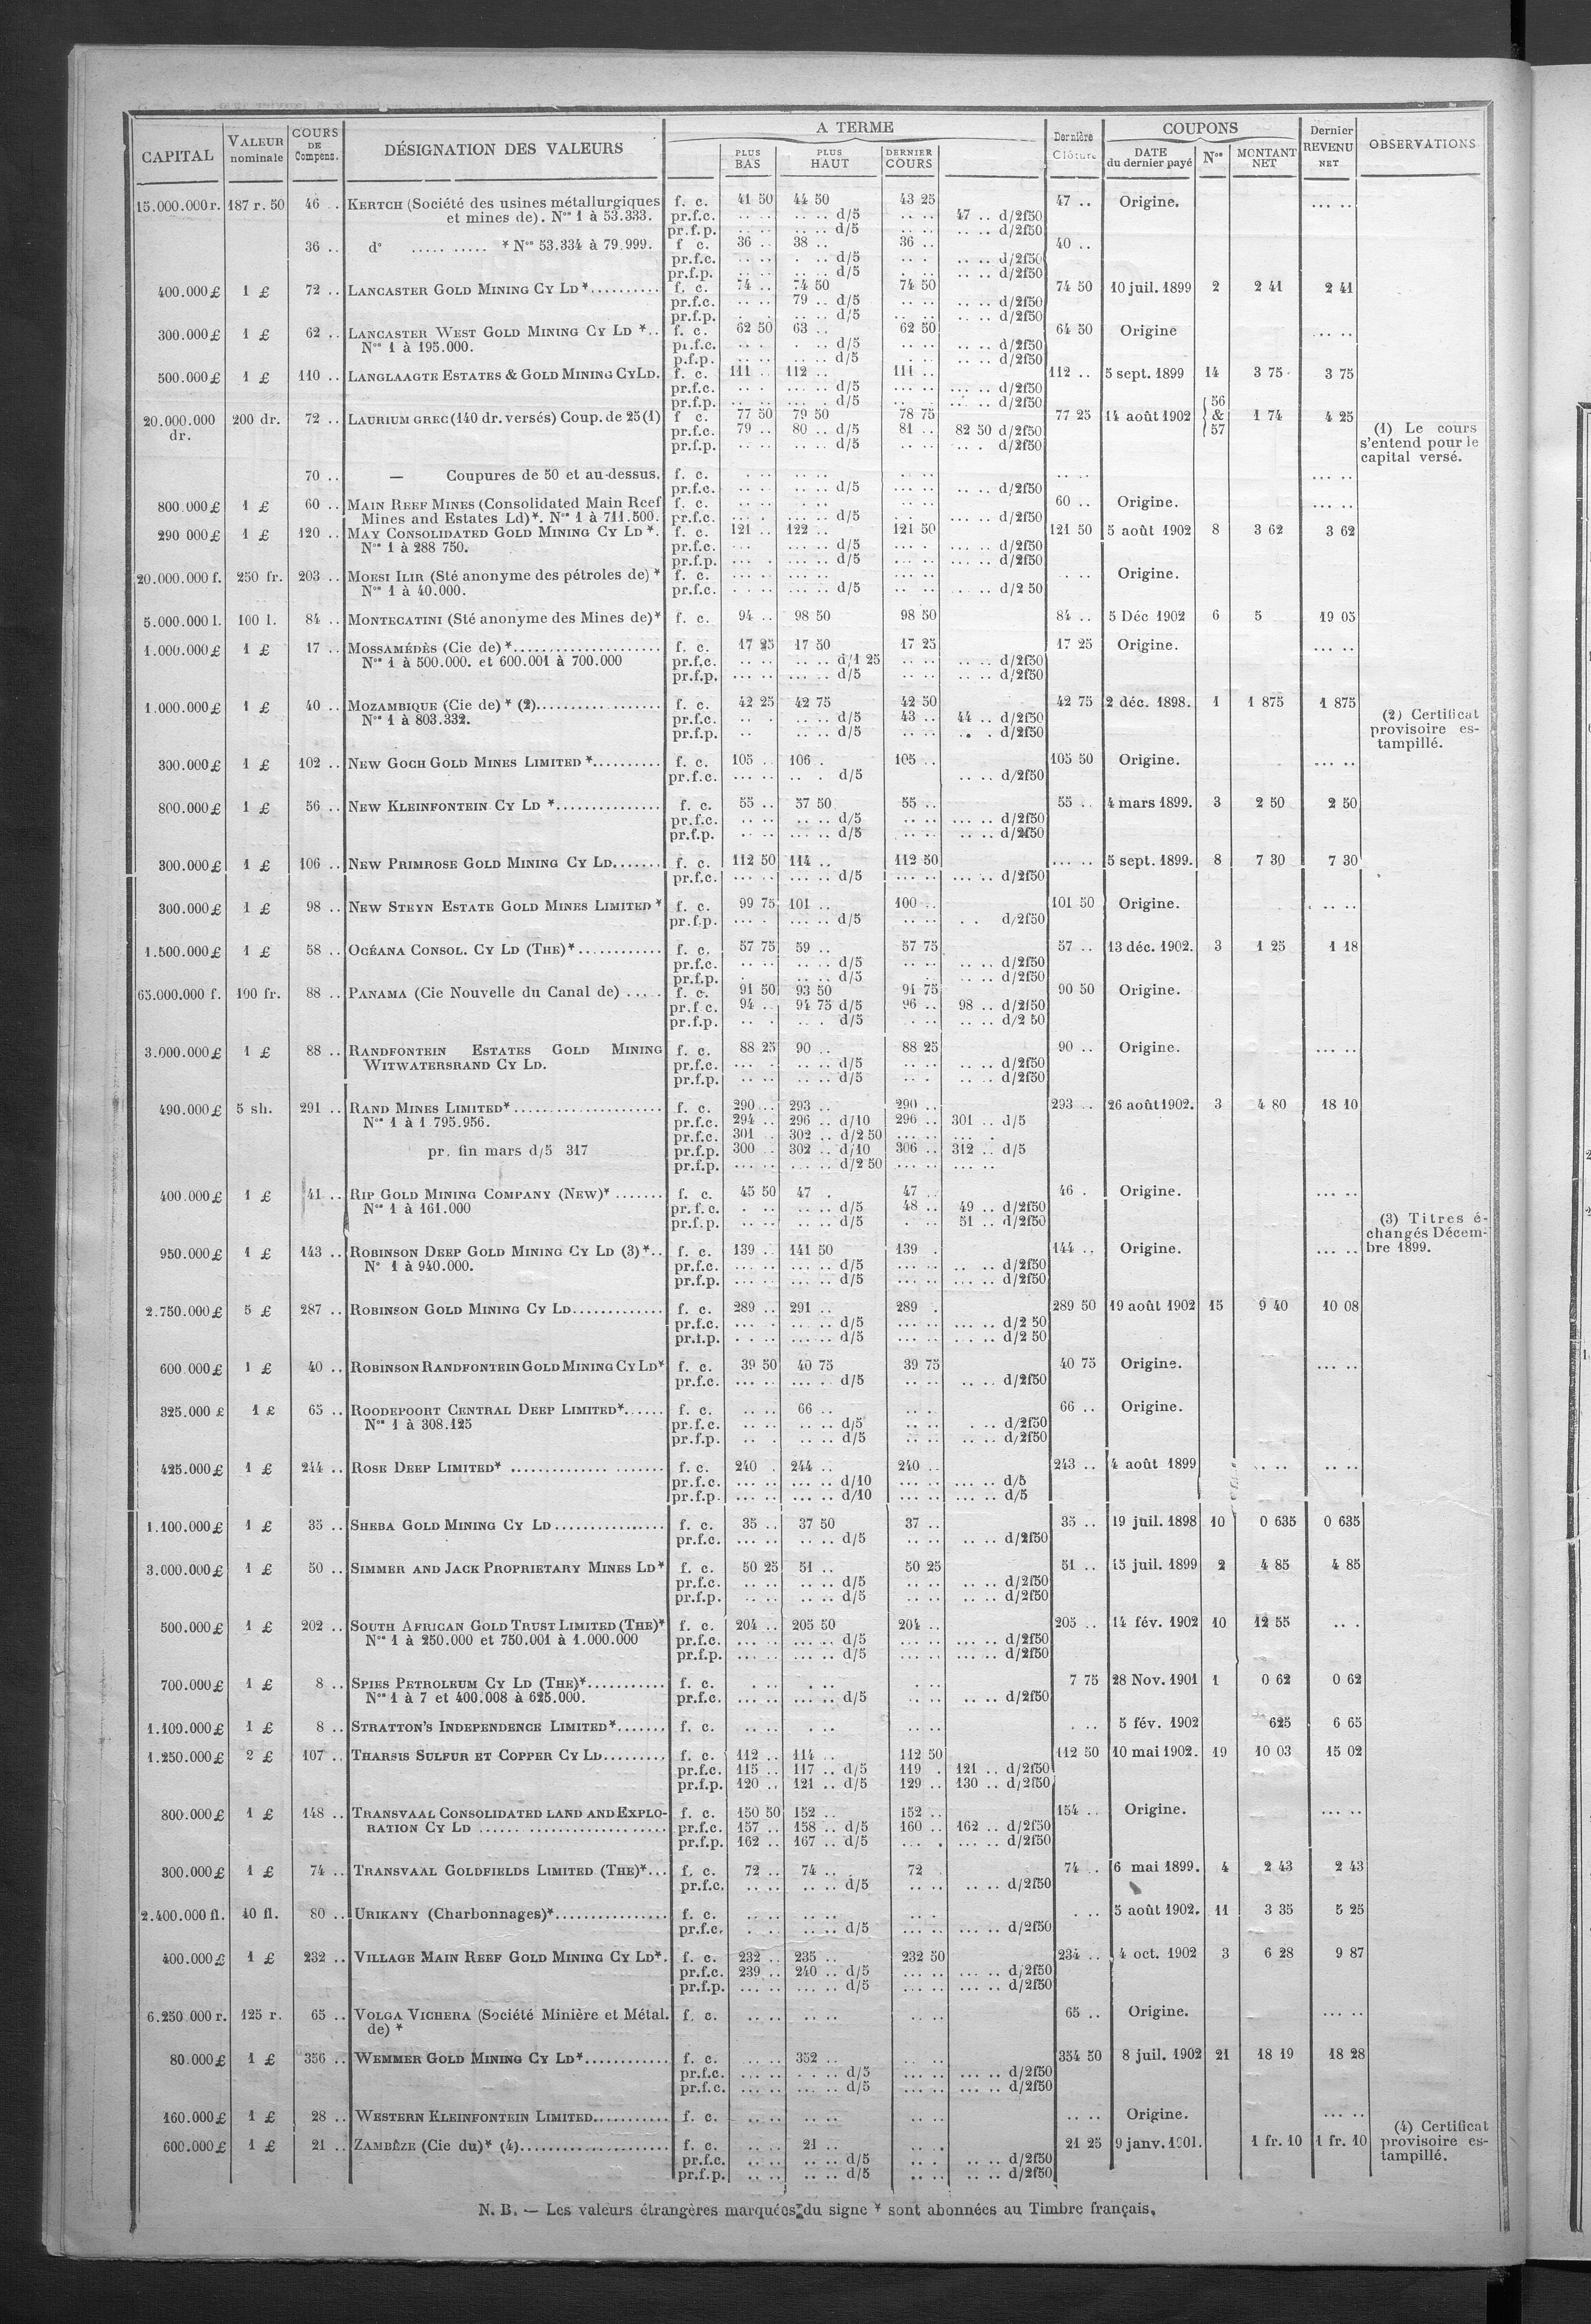 CAPITAL VALEUR nominale COURS DE Compens. DÉSIGNATION DES VALEURS A TERME PLUS BAS PLUS HAUT DERNIER COURS Dernière Clôture COUPONS DATE du dernier payé Nos MONTANT NET Dernier REVENU NET OBSERVATIONS
15.000.000 r. 187 r. 50 46 .. KERTCH (Société des usines métallurgiques f. c. 41 50 44 50 43 25 47 .. Origine. ... ..
et mines de). Nos 1 à 53.333. pr.f.c. .. .. .. .. d/5 .. .. 47 .. d/2f50
pr.f.p. .. .. .. .. d/5 .. .. .. .. d/2f50
36 .. d° ..... ..... * Nos 53.334 à 79.999. f c. 36 .. 38 .. 36 .. 40 ..
pr.f.c. .. .. . .. d/5 .. . .. .. d/2f50
pr.f.p. .. .. .. .. d/5 . .. .. .. d/2f50
400.000 £ 1 £ 72 .. LANCASTER GOLD MINING CY LD *.......... f. c. 74 .. 74 50 74 50 74 50 10 juil. 1899 2 2 41 2 41
pr.f.c. .. .. 79 .. d/5 .. .. .. .. d/2f50
pr.f.p. .. . .. .. d/5 .. .. .. .. d/2f50
300.000 £ 1 £ 62 .. LANCASTER WEST GOLD MINING CY LD *.. f. c. 62 50 63 .. 62 50 64 50 Origine ... ..
Nos 1 à 195.000. pr.f.c. .. . .. .. d/5 .. .. .. .. d/2f50
p.f.p. .. .. .. .. d/5 . .. .. .. d/2f50
500.000 £ 1 £ 110 .. LANGLAAGTE ESTATES & GOLD MINING CY LD. f. c. 111 .. 112 .. 111 .. 112 .. 5 sept. 1899 14 3 75 3 75
pr.f.c. ... . ... .. d/5 ... .. ... .. d/2f50
pr.f.p. ... .. ... .. d/5 ... .. ... .. d/2f50
20.000.000 dr. 200 dr. 72 .. LAURIUM GREC (140 dr. versés) Coup. de 25 (1) f c. 77 50 79 50 78 75 77 25 14 août 1902 56 & 57 1 74 4 25
pr.f.c. 79 .. 80 .. d/5 81 .. 82 50 d/2f50
pr.f.p. .. .. .. .. d/5 .. .. .. . d/2f50
(1) Le cours
s'entend pour le
capital versé.
70 .. — Coupures de 50 et au-dessus. f. c. .. .. .. .. .. .. .. .. ... ..
pr.f.c. .. .. .. .. d/5 .. .. .. .. d/2f50
800.000 £ 1 £ 60 .. MAIN REEF MINES (Consolidated Main Reef f. c. .. .. .. .. .. .. 60 .. Origine. ... ..
Mines and Estates Ld)*. Nos 1 à 711.500. pr.f.c. ... . ... .. d/5 ... .. ... .. d/2f50
290 000 £ 1 £ 120 .. MAY CONSOLIDATED GOLD MINING CY LD *. f. c. 121 .. 122 .. 121 50 121 50 5 août 1902 8 3 62 3 62
Nos 1 à 288 750. pr.f.c. ... ... .. d/5 ... . ... .. d/2f50
pr.f.p. ... . ... .. d/5 ... .. ... .. d/2f50
20.000.000 f. 250 fr. 203 .. MOESI ILIR (Sté anonyme des pétroles de) * f. c. ... .. ... .. ... .. . .. Origine.
Nos 1 à 40.000. pr.f.c. . .. .. .. .. d/5 .. .. . .. d/2 50
5.000.000 l. 100 l. 84 .. MONTECATINI (Sté anonyme des Mines de)* f. c. 94 .. 98 50 98 50 84 .. 5 Déc 1902 6 5 19 05
1.000.000 £ 1 £ 17 .. MOSSAMÉDÈS (Cie de) *.................... f. c. 17 25 17 50 17 25 17 25 Origine. ... ..
Nos 1 à 500.000. et 600.001 à 700.000 pr.f.c. .. .. .. .. d/1 25 .. .. .. .. d/2f50
pr.f.p. ... .. ... .. d/5 .. .. .. .. d/2f50
1.000.000 £ 1 £ 40 .. MOZAMBIQUE (Cie de) * (2)................. f. c. 42 25 42 75 42 50 42 75 2 déc. 1898. 1 1 875 1 875
Nos 1 à 803.332. pr.f.c. .. . .. .. d/5 43 .. 44 .. d/2f50
pr.f.p. .. .. .. d/5 .. .. .. . d/2f50
(2) Certificat
provisoire es-
tampillé.
300.000 £ 1 £ 102 .. NEW GOCH GOLD MINES LIMITED *.......... f. c. 105 .. 106 . 105 .. 105 50 Origine. ... ..
pr.f.c. ... .. .. . d/5 .. .. d/2f50
800.000 £ 1 £ 56 .. NEW KLEINFONTEIN CY LD *............... f. c. 55 .. 57 50 55 .. 55 .. 4 mars 1899. 3 2 50 2 50
pr.f.c. .. .. .. .. d/5 .. .. ... .. d/2f50
pr.f.p. .. .. ... .. d/5 .. .. .. .. d/2f50
300.000 £ 1 £ 106 .. NEW PRIMROSE GOLD MINING CY LD....... f. c. 112 50 114 .. 112 50 ... .. 5 sept. 1899. 8 7 30 7 30
pr.f.c. ... .. ... .. d/5 ... .. ... .. d/2f50
300.000 £ 1 £ 98 .. NEW STEYN ESTATE GOLD MINES LIMITED * f. c. 99 75 101 .. 100 .. 101 50 Origine. . .. ..
pr.f.p. ... . ... .. d/5 ... .. . . d/2f50
1.500.000 £ 1 £ 58 .. OCÉANA CONSOL. CY LD (THE)*............ f. c. 57 75 59 .. 57 75 57 .. 13 déc. 1902. 3 1 25 1 18
pr.f.c. .. .. .. .. d/5 .. .. .. .. d/2f50
pr.f.p. . .. .. d/5 .. . .. .. d/2f50
65.000.000 f. 100 fr. 88 .. PANAMA (Cie Nouvelle du Canal de) ..... f. c. 91 50 93 50 91 75 90 50 Origine.
pr.f c. 94 .. 94 75 d/5 96 .. 98 .. d/2f50
pr.f.p. .. . .. . d/5 . .. .. .. d/2 50
3.000.000 £ 1 £ 88 .. RANDFONTEIN ESTATES GOLD MINING f. c. 88 25 90 .. 88 25 90 .. Origine. ... ..
WITWATERSRAND CY LD. pr.f.c. ... . .. .. d/5 .. .. .. .. d/2f50
pr.f.p. .. .. .. .. d/5 .. . .. .. d/2f50
490.000 £ 5 sh. 291 .. RAND MINES LIMITED*...................... f. c. 290 .. 293 .. 290 .. 293 .. 26 août 1902. 3 4 80 18 10
Nos 1 à 1 795.956. pr.f.c. 294 .. 296 .. d/10 296 .. 301 .. d/5
pr.f.c. 301 . 302 .. d/2 50 ... .. ... .
pr. fin mars d/5 317 pr.f.p. 300 .. 302 .. d/10 306 .. 312 .. d/5
pr.f.p. ... .. .. .. d/2 50 ... .. ... ..
400.000 £ 1 £ 41 .. RIP GOLD MINING COMPANY (NEW)* ....... f. c. 45 50 47 . 47 .. 46 . Origine. ... ..
Nos 1 à 161.000 pr.f.c. . .. .. .. d/5 48 .. 49 .. d/2f50
pr.f.p. .. .. .. .. d/5 . .. 51 .. d/2f50
(3) Titres é-
changés Décem-
bre 1899.
950.000 £ 1 £ 143 .. ROBINSON DEEP GOLD MINING CY LD (3)*.. f. c. 139 .. 141 50 139 . 144 .. Origine. ... ..
N° 1 à 940.000. pr.f.c. ... .. ... .. d/5 ... .. .. .. d/2f50
pr.f.p. ... .. ... .. d/5 ... .. ... .. d/2f50
2.750.000 £ 5 £ 287 .. ROBINSON GOLD MINING CY LD............. f. c. 289 .. 291 .. 289 . 289 50 19 août 1902 15 9 40 10 08
pr.f.c. ... . ... .. d/5 ... .. ... .. d/2 50
pr.f.p. . .. ... .. d/5 ... .. ... .. d/2 50
600.000 £ 1 £ 40 .. ROBINSON RANDFONTEIN GOLD MINING CY LD* f. c. 39 50 40 75 39 75 40 75 Origine. ... ..
pr.f.c. ... .. ... . d/5 .. .. .. .. d/2f50
325.000 £ 1 £ 65 .. ROODEPOORT CENTRAL DEEP LIMITED*...... f. c. .. .. 66 .. .. . 66 .. Origine.
Nos 1 à 308.125 pr.f.c. .. .. .. .. d/5 .. .. . .. d/2f50
pr.f.p. .. . .. .. d/5 .. .. .. .. d/2f50
425.000 £ 1 £ 244 .. ROSE DEEP LIMITED* .............. ....... f. c. 240 . 244 .. 240 .. 243 .. 4 août 1899 .. .. .. ..
pr.f.c. ... .. ... .. d/10 ... .. ... .. d/5
pr.f.p. ... .. ... .. d/10 ... .. ... .. d/5
1.100.000 £ 1 £ 35 .. SHEBA GOLD MINING CY LD................ f. c. 35 .. 37 50 37 .. 35 .. 19 juil. 1898 10 0 635 0 635
pr.f.c. ... .. ... .. d/5 ... .. .. .. d/2f50
3.000.000 £ 1 £ 50 .. SIMMER AND JACK PROPRIETARY MINES LD* f. c. 50 25 51 .. 50 25 51 .. 15 juil. 1899 2 4 85 4 85
pr.f.c. .. .. .. .. d/5 .. .. .. .. d/2f50
pr.f.p. .. .. .. .. d/5 .. .. .. .. d/2f50
500.000 £ 1 £ 202 .. SOUTH AFRICAN GOLD TRUST LIMITED (THE)* f. c. 204 .. 205 50 204 .. 205 .. 14 fév. 1902 10 12 55 .. .
Nos 1 à 250.000 et 750.001 à 1.000.000 pr.f.c. ... .. ... .. d/5 ... .. ... .. d/2f50
pr.f.p. ... .. ... .. d/5 ... .. ... .. d/2f50
700.000 £ 1 £ 8 .. SPIES PETROLEUM CY LD (THE)*........... f. c. . .. . .. . .. 7 75 28 Nov. 1901 1 0 62 0 62
Nos 1 à 7 et 400.008 à 625.000. pr.f.c. ... .. ... .. d/5 .. .. .. .. d/2f50
1.100.000 £ 1 £ 8 .. STRATTON'S INDEPENDENCE LIMITED*....... f. c. .. .. . .. .. .. . .. 5 fév. 1902 625 6 65
1.250.000 £ 2 £ 107 .. THARSIS SULFUR ET COPPER CY LD......... f. c. 112 .. 114 .. 112 50 112 50 10 mai 1902. 19 10 03 15 02
pr.f.c. 115 .. 117 .. d/5 119 . 121 .. d/2f50
pr.f.p. 120 .. 121 .. d/5 129 .. 130 .. d/2f50
800.000 £ 1 £ 148 .. TRANSVAAL CONSOLIDATED LAND AND EXPLO- f. c. 150 50 152 .. 152 .. 154 .. Origine. ... ..
RATION CY LD ........................... pr.f.c. 157 .. 158 .. d/5 160 .. 162 .. d/2f50
pr.f.p. 162 .. 167 .. d/5 ... . ... .. d/2f50
300.000 £ 1 £ 74 .. TRANSVAAL GOLDFIELDS LIMITED (THE)*... f. c. 72 .. 74 .. 72 . 74 .. 6 mai 1899. 4 2 43 2 43
pr.f.c. .. .. .. .. d/5 .. .. .. .. d/2f50
2.400.000 fl. 40 fl. 80 .. URIKANY (Charbonnages)*................ f. c. .. .. .. .. .. . . .. 5 août 1902. 11 3 35 5 25
pr.f.c. . .. .. .. d/5 ... .. ... .. d/2f50
400.000 £ 1 £ 232 .. VILLAGE MAIN REEF GOLD MINING CY LD*. f. c. 232 .. 235 .. 232 50 234 .. 4 oct. 1902 3 6 28 9 87
pr.f.c. 239 .. 240 .. d/5 ... .. ... .. d/2f50
pr.f.p. ... .. ... .. d/5 ... .. ... .. d/2f50
6.250 000 r. 125 r. 65 .. VOLGA VICHERA (Société Minière et Métal. f. c. .. .. .. .. .. .. 65 .. Origine. ... ..
de) *
80.000 £ 1 £ 356 .. WEMMER GOLD MINING CY LD*............ f. c. ... .. 352 .. .. .. 354 50 8 juil. 1902 21 18 19 18 28
pr.f.c. ... .. . .. d/5 ... .. ... .. d/2f50
pr.f.c. ... .. ... .. d/5 ... .. ... .. d/2f50
160.000 £ 1 £ 28 .. WESTERN KLEINFONTEIN LIMITED........... f. c. .. .. .. .. .. .. .. .. Origine. ... ..
600.000 £ 1 £ 21 .. ZAMBÈZE (Cie du)* (4)..................... f. c. .. .. 21 .. .. . 21 25 9 janv. 1901. 1 fr. 10 1 fr. 10
pr.f.c. .. .. .. .. d/5 .. . .. .. d/2f50
pr.f.p. .. .. .. .. d/5 .. .. .. .. d/2f50
(4) Certificat
provisoire es-
tampillé.
N. B. — Les valeurs étrangères marquées du signe * sont abonnées au Timbre français.